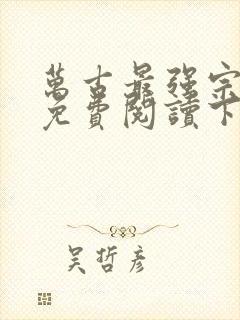 萬古最強宗
免費閱讀下
吴哲彦